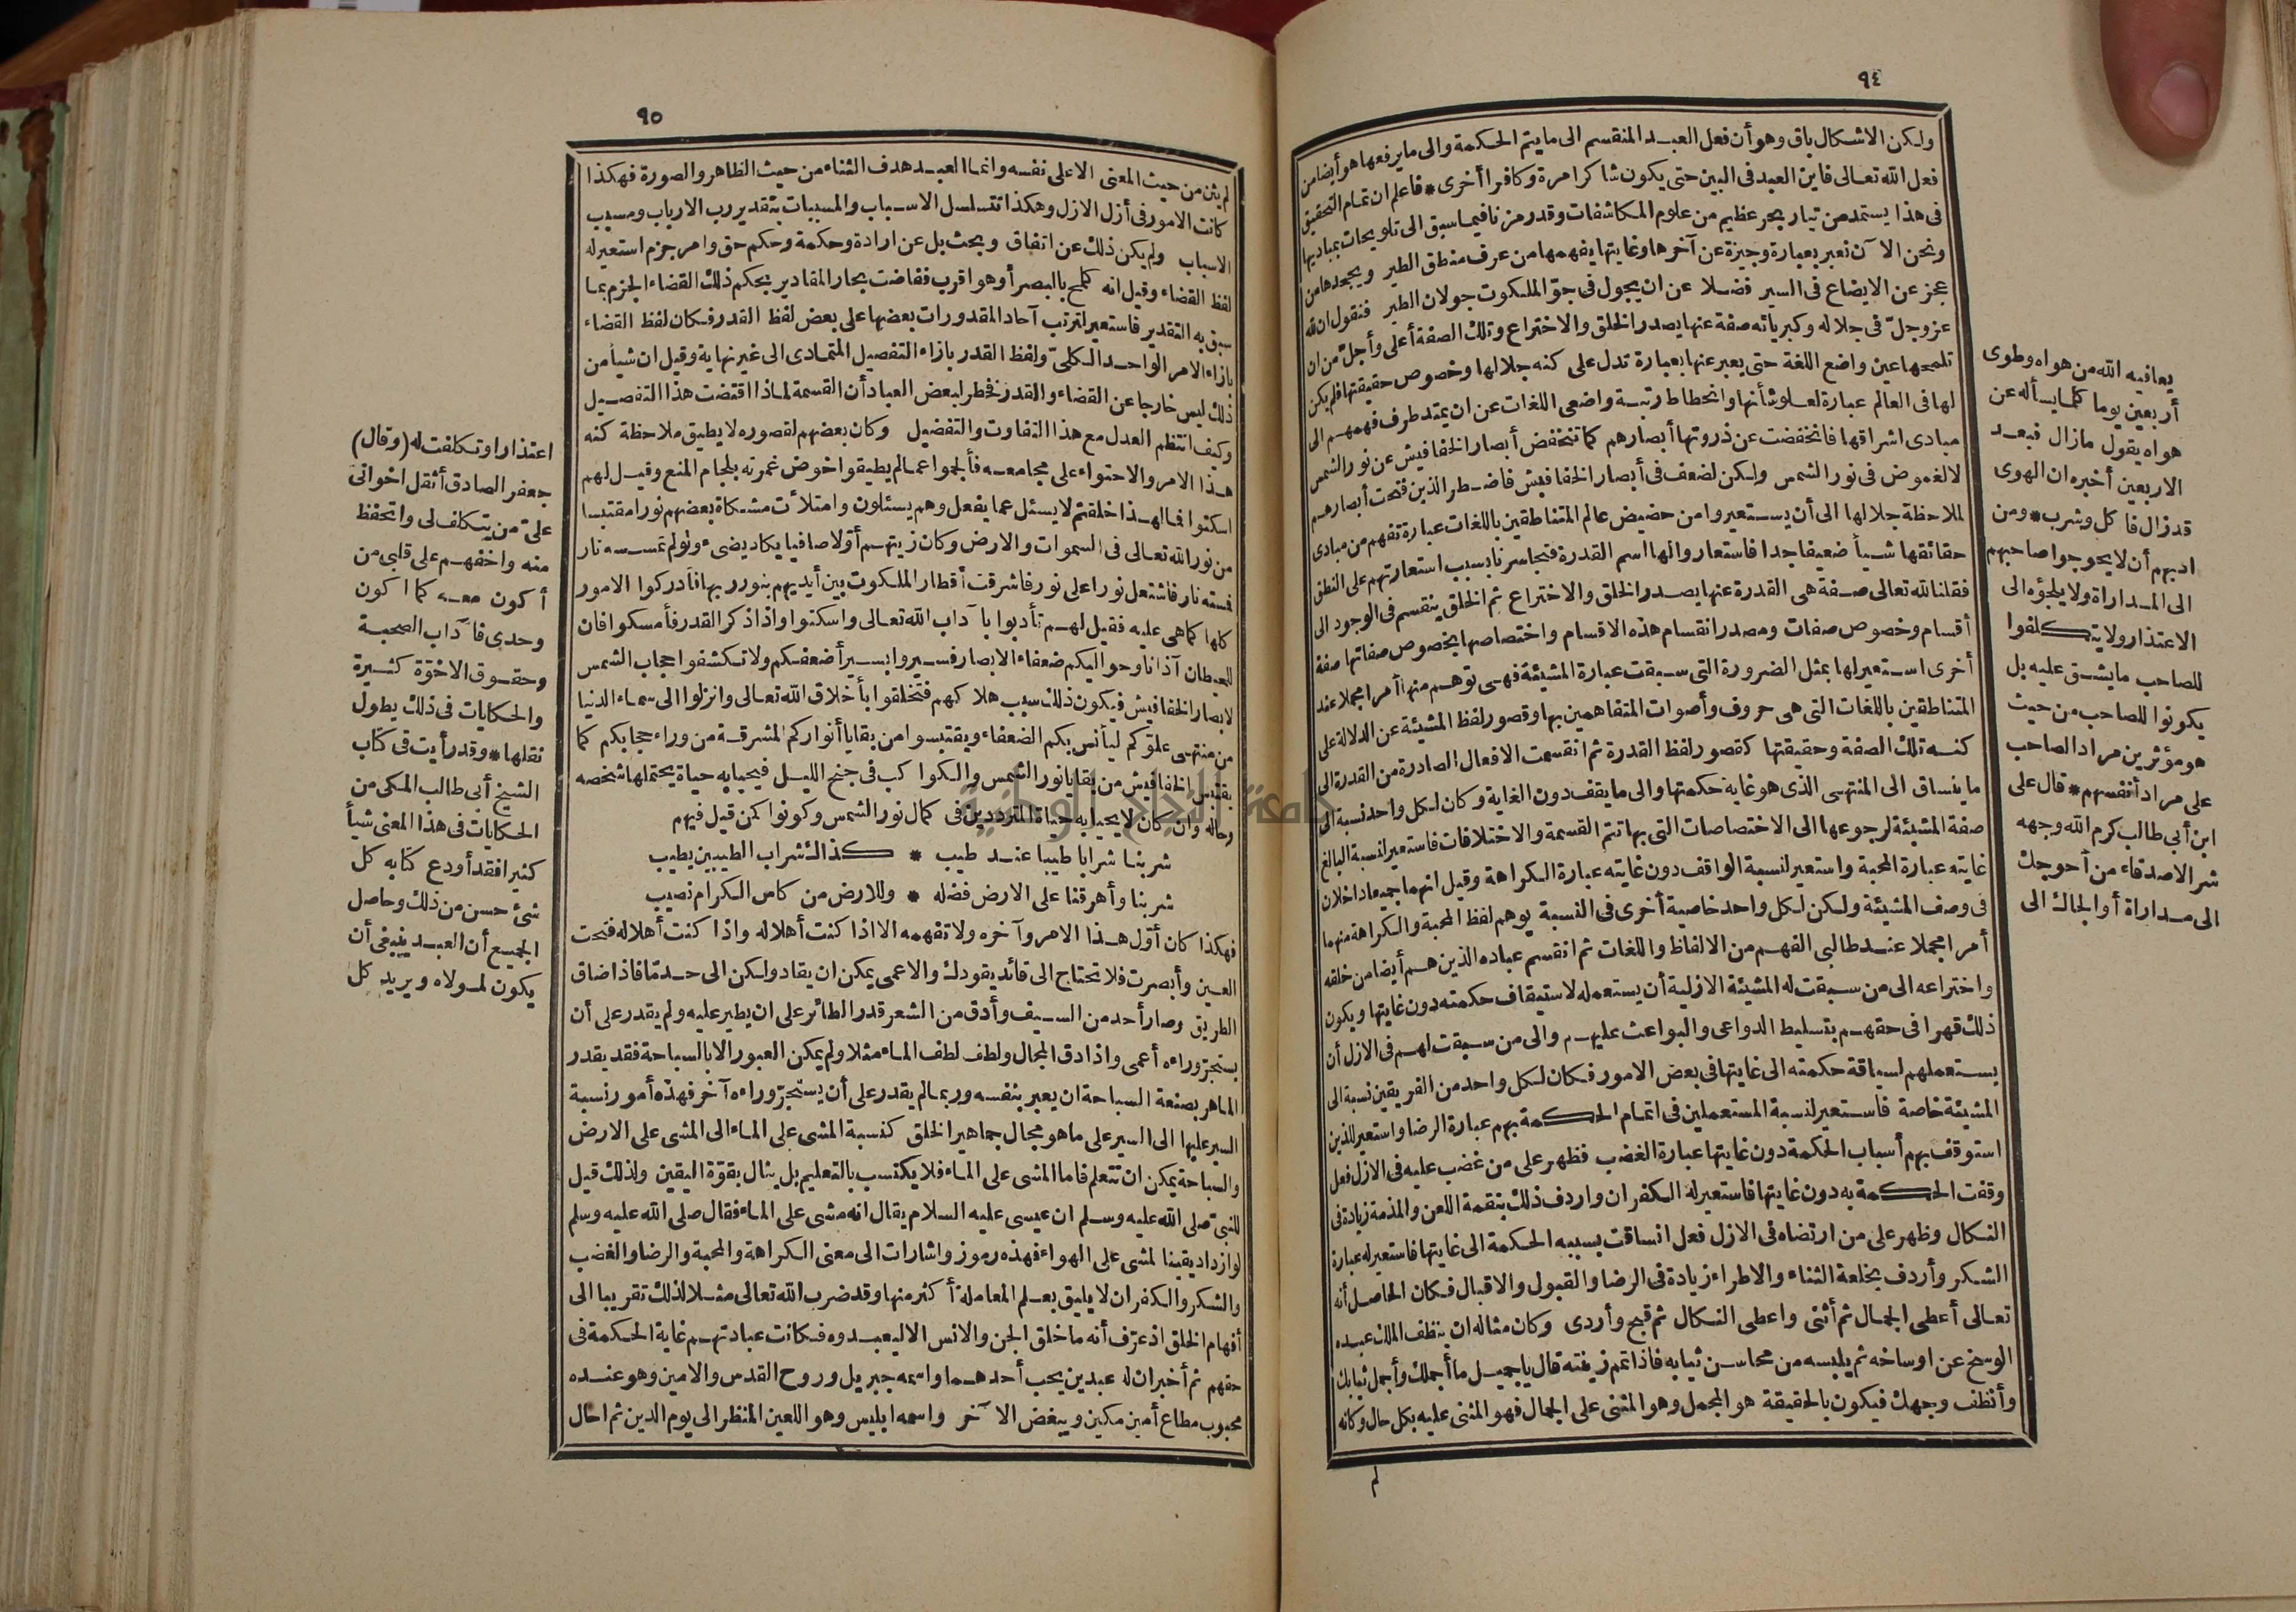 ٩٤
ولكن الاشكال باق وهو أن فعل العبد المنقسم الى ما يتم الحكمة والى ما يرفعها هو أيضا من
فعل الله تعالى فاين العبد فى البين حتى يكون شاكرا مرة وكافرا أخرى * فاعلم ان تمام التحقيق
فى هذا يستمد من تيار بحر عظيم من علوم المكاشفات وقد رمزنا فيما سبق الى تلويحات بمباديها
ونحن الآن نعبر بعبارة وجيزة عن آخرها وغايتها يفهمها من عرف منطق الطير ويجحدها من
عجز عن الايضاع فى السير فضلا عن ان يجول فى جوّ الملكوت جولان الطير فنقول ان لله
عز وجلّ فى جلاله وكبريائه صفة عنها يصدر الخلق والاختراع وتلك الصفة أعلى وأجلّ من ان
تلمحها عين واضع اللغة حتى يعبر عنها بعبارة تدل على كنه جلالها وخصوص حقيقتها فلم يكن
لها فى العالم عبارة لعلو شأنها وانحطاط رتبة واضعى اللغات عن ان يمتد طرف فهمهم الى
مبادى اشراقها فانخفضت عن ذروتها أبصارهم كما تنخفض أبصار الخفافيش عن نور الشمس
لا لغموض فى نور الشمس ولكن لضعف فى أبصار الخفافيش فاضطر الذين فتحت أبصارهم
لملاحظة جلالها الى أن يستعيروا من حضيض عالم المتناطقين باللغات عبارة تفهم من مبادى
حقائقها شيأ ضعيفا جدا فاستعاروا لها اسم القدرة فتجاسرنا بسبب استعارتهم على النطق
فقلنا لله تعالى صفة هى القدرة عنها يصدر الخلق والاختراع ثم الخلق ينقسم فى الوجود الى
أقسام وخصوص صفات ومصدر انقسام هذه الاقسام واختصاصها بخصوص صفاتها صفة
أخرى استعير لها بمثل الضرورة التى سبقت عبارة المشيئة فهى توهم منها أمرا مجملا عند
المتناطقين باللغات التى هى حروف وأصوات المتفاهمين بها وقصور لفظ المشيئة عن الدلالة على
كنه تلك الصفة وحقيقتها كقصور لفظ القدرة ثم انقسمت الافعال الصادرة من القدرة الى
ما ينساق الى المنتهى الذى هو غاية حكمتها والى ما يقف دون الغاية وكان لكل واحد نسبة الى
صفة المشيئة لرجوعها الى الاختصاصات التى بها تتم القسمة والاختلافات فاستعير لنسبة البالغ
غايته عبارة المحبة واستعير لنسبة الواقف دون غايته عبارة الكراهة وقيل انهما جميعا داخلان
فى وصف المشيئة ولكن لكل واحد خاصية أخرى فى النسبة يوهم لفظ المحبة والكراهة منهما
أمرا مجملا عند طالبى الفهم من الالفاظ واللغات ثم انقسم عباده الذين هم أيضا من خلقه
واختراعه الى من سبقت له المشيئة الازلية أن يستعمله لاستيقاف حكمته دون غايتها ويكون
ذلك قهرا فى حقهم بتسليط الدواعى والبواعث عليهم والى من سبقت لهم فى الازل أن
يستعملهم لسياقة حكمته الى غايتها فى بعض الامور فكان لكل واحد من الفريقين نسبة الى
المشيئة خاصة فاستعير لنسبة المستعملين فى اتمام الحكمة بهم عبارة الرضا واستعير للذين
استوقف بهم أسباب الحكمة دون غايتها عبارة الغضب فظهر على من غضب عليه فى الازل فعل
وقفت الحكمة به دون غايتها فاستعير له الكفران واردف ذلك بنقمة اللعن والمذمة زيادة فى
النكال وظهر على من ارتضاه فى الازل فعل انساقت بسببه الحكمة الى غايتها فاستعير له عبارة
الشكر وأردف بخلعة الثناء والاطراء زيادة فى الرضا والقبول والاقبال فكان الحاصل أنه
تعالى أعطى الجمال ثم أثنى واعطى النكال ثم قبح وأردى وكان مثاله ان ينظف الملك عبده
الوسخ عن اوساخه ثم يلبسه من محاسن ثيابه فاذا تمم زينته قال يا جميل ما أجملك وأجمل ثيابك
وأنظف وجهك فيكون بالحقيقة هو المجمل وهو المثنى على الجمال فهو المثنى عليه بكل حال وكأنه
لم
يعافيه الله من هواه وطوى
أربعين يوما كلما يسأله عن
هواه يقول مازال فبعد
الاربعين أخبره ان الهوى
قد زال فأكل وشرب * ومن
ادبهم أن لا يحوجوا صاحبهم
الى المداراة ولا يلجؤه الى
الاعتذار ولا يتكلفوا
للصاحب ما يشق عليه بل
يكونوا للصاحب من حيث
هو مؤثرين مراد الصاحب
على مراد أنفسهم * قال على
ابن أبى طالب كرم الله وجهه
شر الاصدقاء من أحوجك
الى مداراة أو ألجأك الى
٩٥
لم يثن من حيث المعنى الا على نفسه وانما العبد هدف الثناء من حيث الظاهر والصورة فهكذا
كانت الامور فى أزل الازل وهكذا تتسلسل الاسباب والمسببات بتقدير رب الارباب ومسبب
الاسباب ولم يكن ذلك عن اتفاق وبحث بل عن ارادة وحكمة وحكم حق وامر جزم استعير له
لفظ القضاء وقيل انه كلمح بالبصر أو هو اقرب ففاضت بحار المقادير بحكم ذلك القضاء الجزم بما
سبق به التقدير فاستعير لترتب آحاد المقدورات بعضها على بعض لفظ القدر فكان لفظ القضاء
بازاء الامر الواحد الكلىّ ولفظ القدر بازاء التفصيل المتمادى الى غير نهاية وقيل ان شيأ من
ذلك ليس خارجا عن القضاء والقدر فخطر لبعض العباد أن القسمة لماذا اقتضت هذا التفصيل
وكيف انتظم العدل مع هذا التفاوت والتفضيل وكان بعضهم لقصوره لا يطيق ملاحظة كنه
هذا الامر والاحتواء على مجامعه فألجموا عما لم يطيقوا خوض غمرته بلجام المنع وقيل لهم
اسكتوا فما لهذا خلقتم لا يسئل عما يفعل وهم يسئلون وامتلأت مشكاة بعضهم نورا مقتبسا
من نور الله تعالى فى السموات والارض وكان زيتهم أوّلا صافيا يكاد يضىء ولو لم تمسسه نار
فمسته نار فاشتعل نورا على نور فاشرقت أقطار الملكوت بين أيديهم بنور ربها فأدركوا الامور
كلها كما هى عليه فقيل لهم تأدبوا بآداب الله تعالى واسكتوا واذا ذكر القدر فأمسكوا فان
للحيطان آذانا وحواليكم ضعفاء الابصار فسيروا بسير أضعفكم ولا تكشفوا حجاب الشمس
لابصار الخفافيش فيكون ذلك سبب هلاكهم فتخلقوا بأخلاق الله تعالى وانزلوا الى سماء الدنيا
من منتهى علوّكم ليأنس بكم الضعفاء ويقتبسوا من بقايا أنواركم المشرقة من وراء حجابكم كما
يقتبس الخفافيش من بقايا نور الشمس والكواكب فى جنح الليل فيحيا به حياة يحتملها شخصه
وحاله وان كان لا يحيا به حياة المترددين فى كمال نور الشمس وكونوا كمن قيل فيهم
شربنا شرابا طيبا عند طيب * كذاك شراب الطيبين يطيب
شربنا وأهرقنا على الارض فضله * وللارض من كاس الكرام نصيب
فهكذا كان أوّل هذا الامر وآخره ولا تفهمه الا اذا كنت أهلا له واذا كنت أهلا له فتحت
العين وأبصرت فلا تحتاج الى قائد يقودك والاعمى يمكن ان يقاد ولكن الى حد مّا فاذا ضاق
الطريق وصار أحد من السيف وأدق من الشعر قدر الطائر على ان يطير عليه ولم يقدر على أن
يستجرّ وراءه أعمى واذا دق المجال ولطف لطف الماء مثلا ولم يمكن العبور الا بالسباحة فقد يقدر
الماهر بصنعة السباحة ان يعبر بنفسه وربما لم يقدر على أن يستجرّ وراءه آخر فهذه أمور نسبة
السير عليها الى السير على ما هو مجال جماهير الخلق كنسبة المشى على الماء الى المشى على الارض
والسباحة يمكن ان تتعلم فاما المشى على الماء فلا يكتسب بالتعليم بل ينال بقوّة اليقين ولذلك قيل
للنبىّ صلى الله عليه وسلم ان عيسى عليه السلام يقال انه مشى على الماء فقال صلى الله عليه وسلم
لو ازداد يقينا لمشى على الهواء فهذه رموز واشارات الى معنى الكراهة والمحبة والرضا والغضب
والشكر والكفران لا يليق بعلم المعاملة أكثر منها وقد ضرب الله تعالى مثلا لذلك تقريبا الى
أفهام الخلق اذ عرّف أنه ما خلق الجن والانس الا ليعبدوه فكانت عبادتهم غاية الحكمة فى
حقهم ثم أخبر ان له عبدين يحب أحدهما واسمه جبريل وروح القدس والامين وهو عنده
محبوب مطاع أمين مكين ويبغض الآخر واسمه ابليس وهو اللعين المنظر الى يوم الدين ثم احال
اعتذار او تكلفت له (وقال)
جعفر الصادق أثقل اخوانى
علىّ من يتكلف لى واتحفظ
منه واخفهم على قلبى من
أكون معه كما اكون
وحدى فآداب الصحبة
وحقوق الاخوّة كثيرة
والحكايات فى ذلك يطول
نقلها * وقد رأيت فى كتاب
الشيخ أبى طالب المكى من
الحكايات فى هذا المعنى شيأ
كثيرا فقد أودع كتابه كل
شئ حسن من ذلك وحاصل
الجميع أن العبد ينبغى أن
يكون لمولاه ويريد كل
جامعة النجاح الوطنية